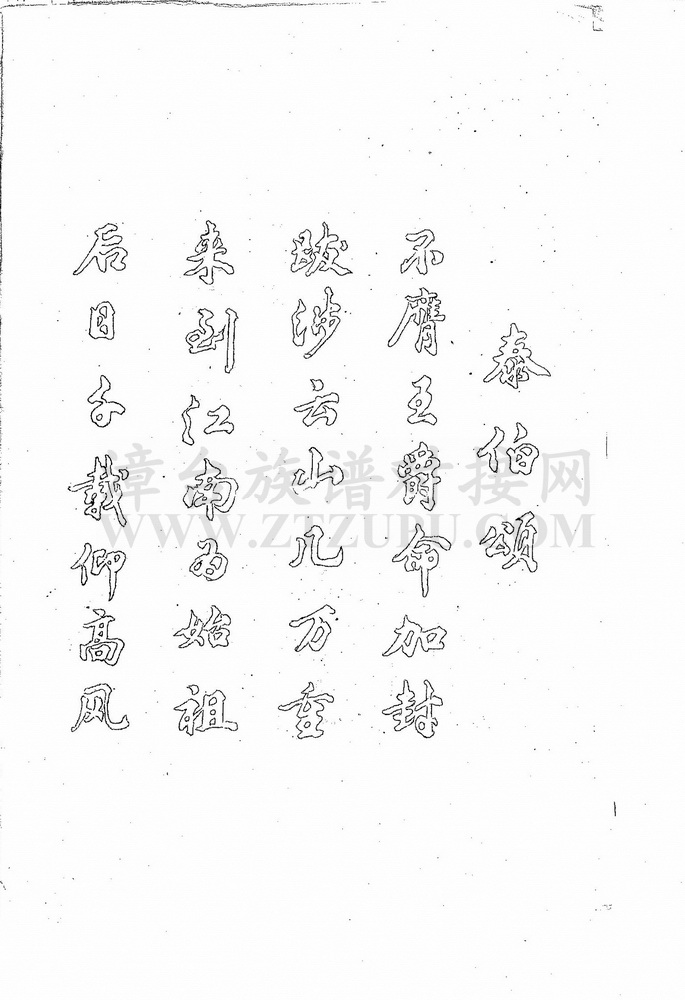 泰伯颂
不膺王爵命加封
跋涉云山几万重
来到江南为始祖
后日千载仰高风
漳台族谱对接网
WWW.ZTZUPU.COM